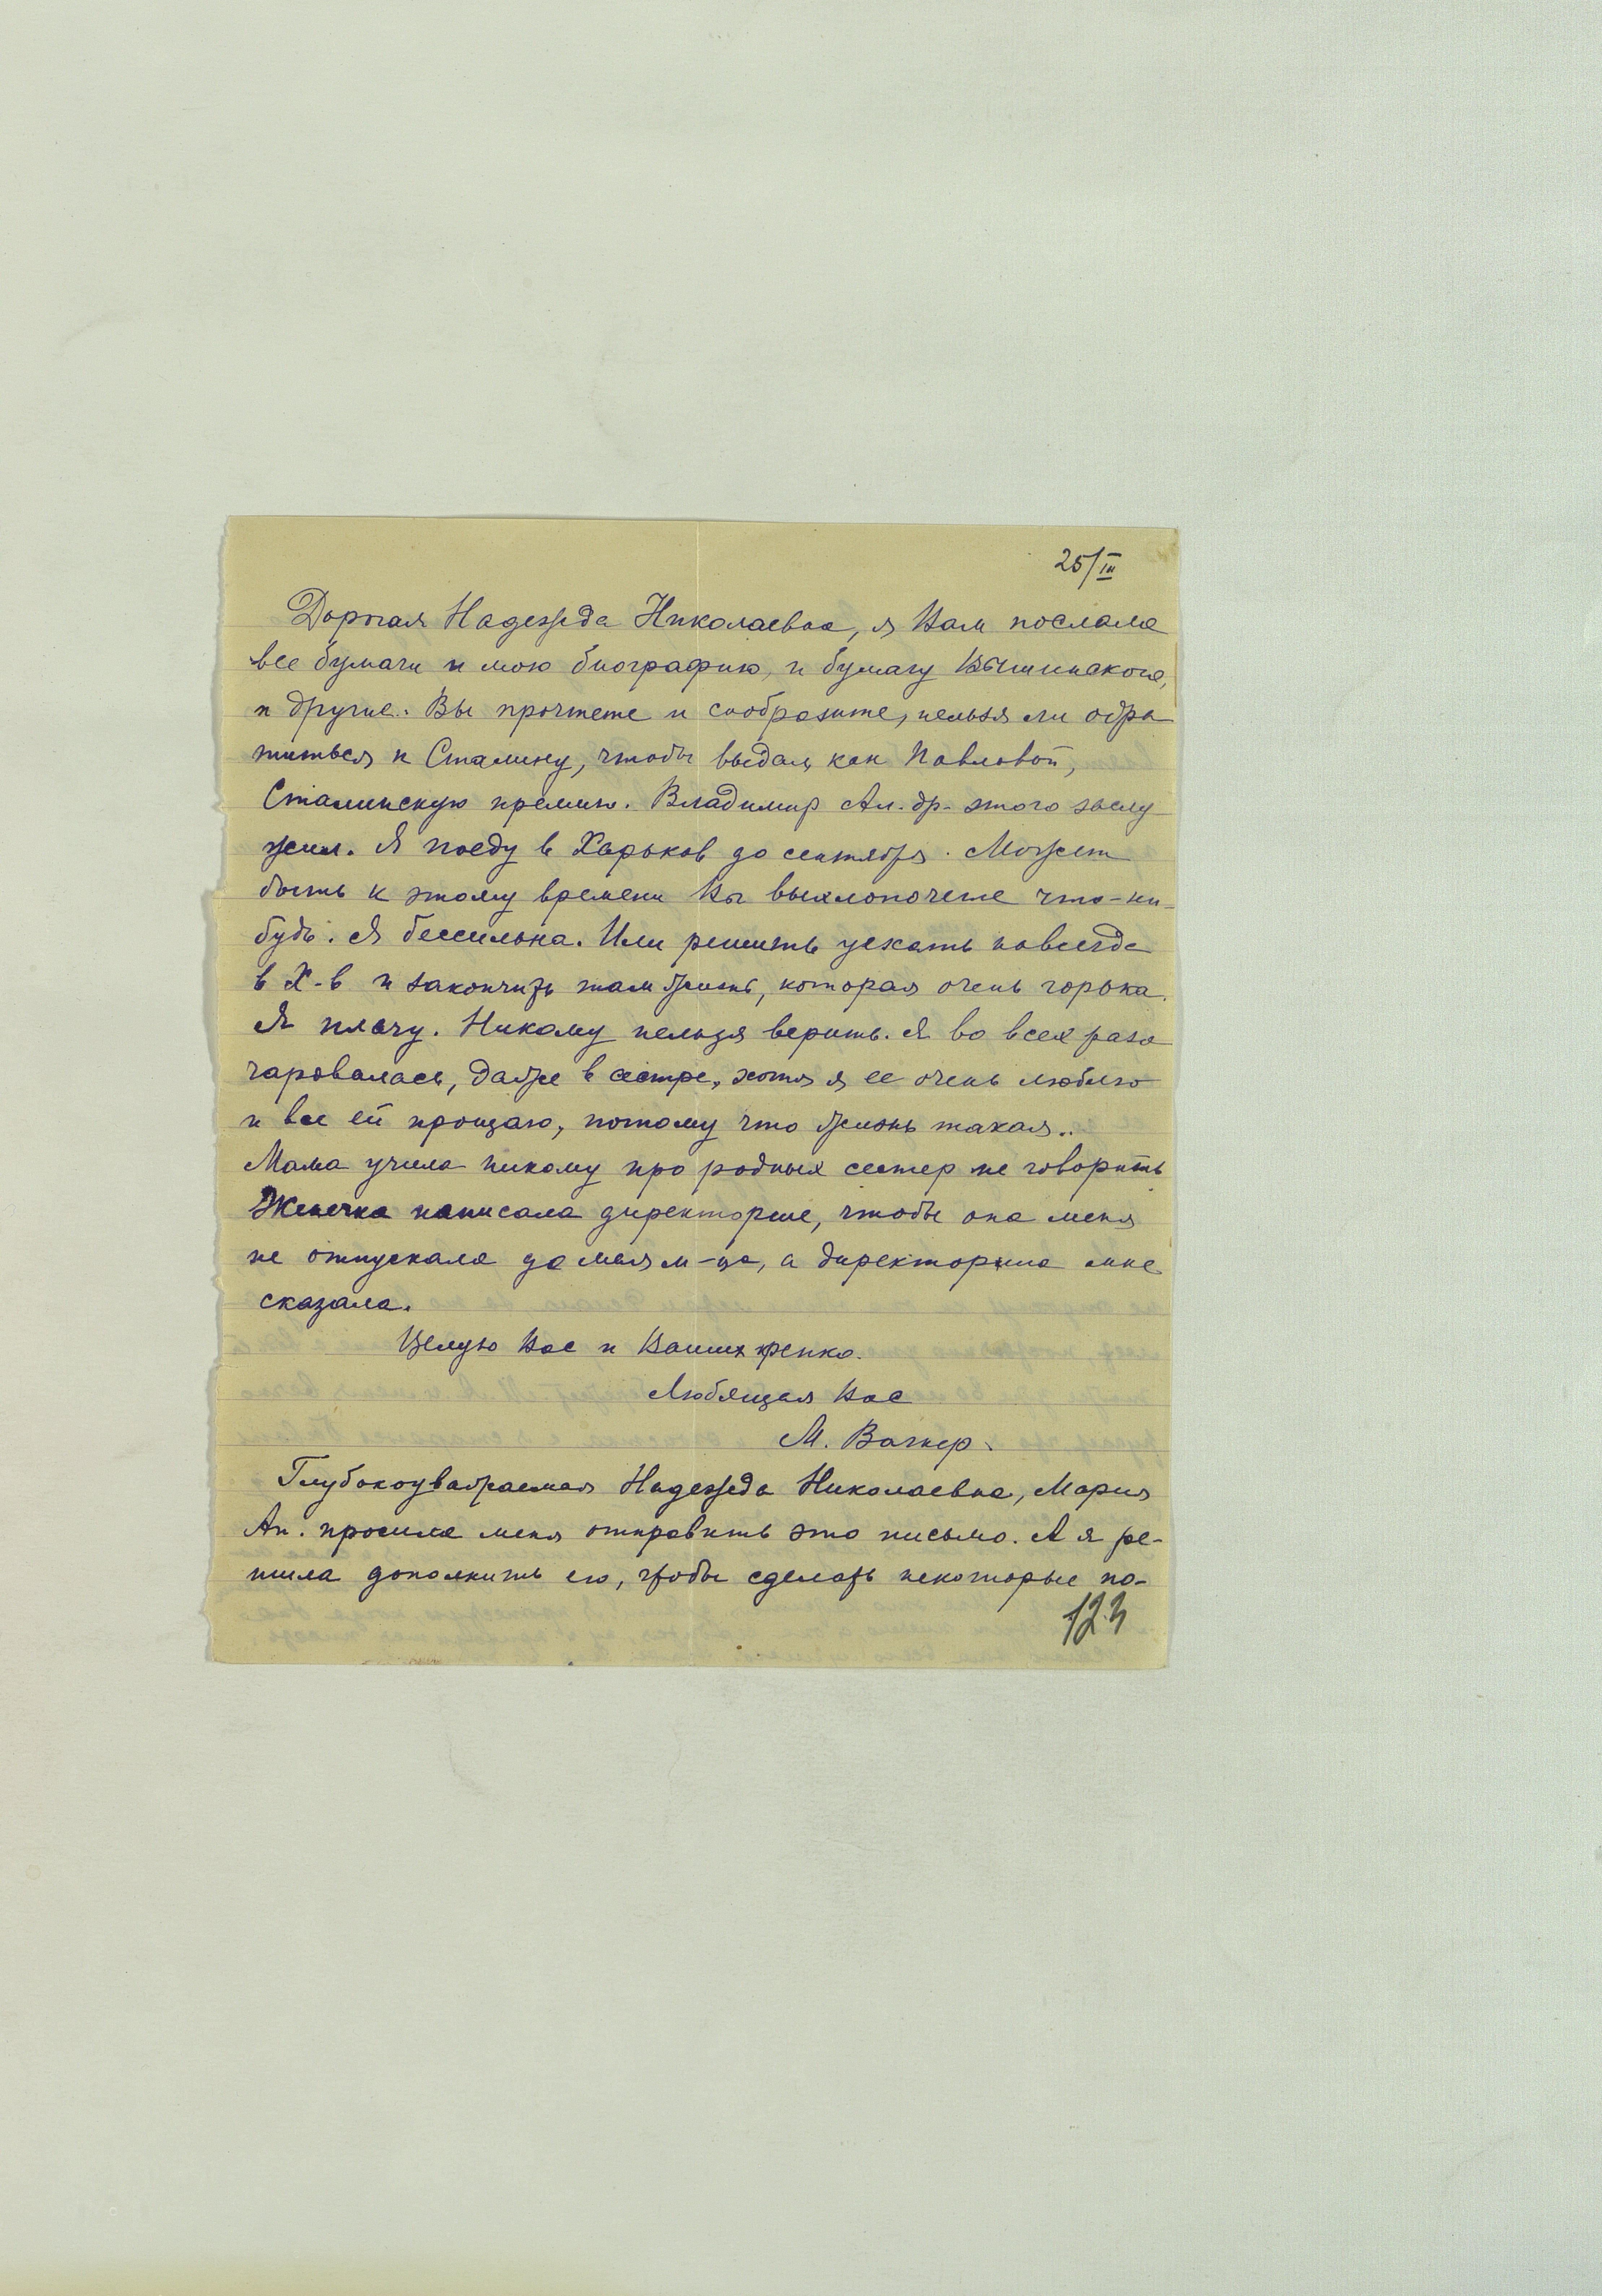 25/III
Дорогая Надежда Николаевна, я Вам послала
все бумаги и мою биографию, и бумагу Вышинского,
и другие. Вы прочтете и сообразите, нельзя ли обра
титься к Сталину, чтобы выдал, как Павловой,
Сталинскую премию. Владимир Ал-др. этого заслу
жил. Я поеду в Харьков до сентября. Может
быть к этому времени Вы выхлопочете что-ни-
будь. Я бессильна. Или решить уехать навсегда
в Х-в и закончить там жизнь, которая очень горька.
Я плачу. Никому нельзя верить. Я во всех разо
чаровалась, даже в сестре, хотя я ее очень люблю
и все ей прощаю, потому что жизнь такая..
Мама учила никому про родных сестер не говорить
Женечка написала директорше, чтобы она меня
не отпускала до мая м-ца, а директорша мне
сказала.
Целую Вас и Ваших крепко.
Любящая Вас
М. Вагнер.
Глубокоуважаемая Надежда Николаевна, Мария
Ан. просила меня отправить это письмо. А я ре-
шила дополнить его, чтобы сделать некоторые по-
123